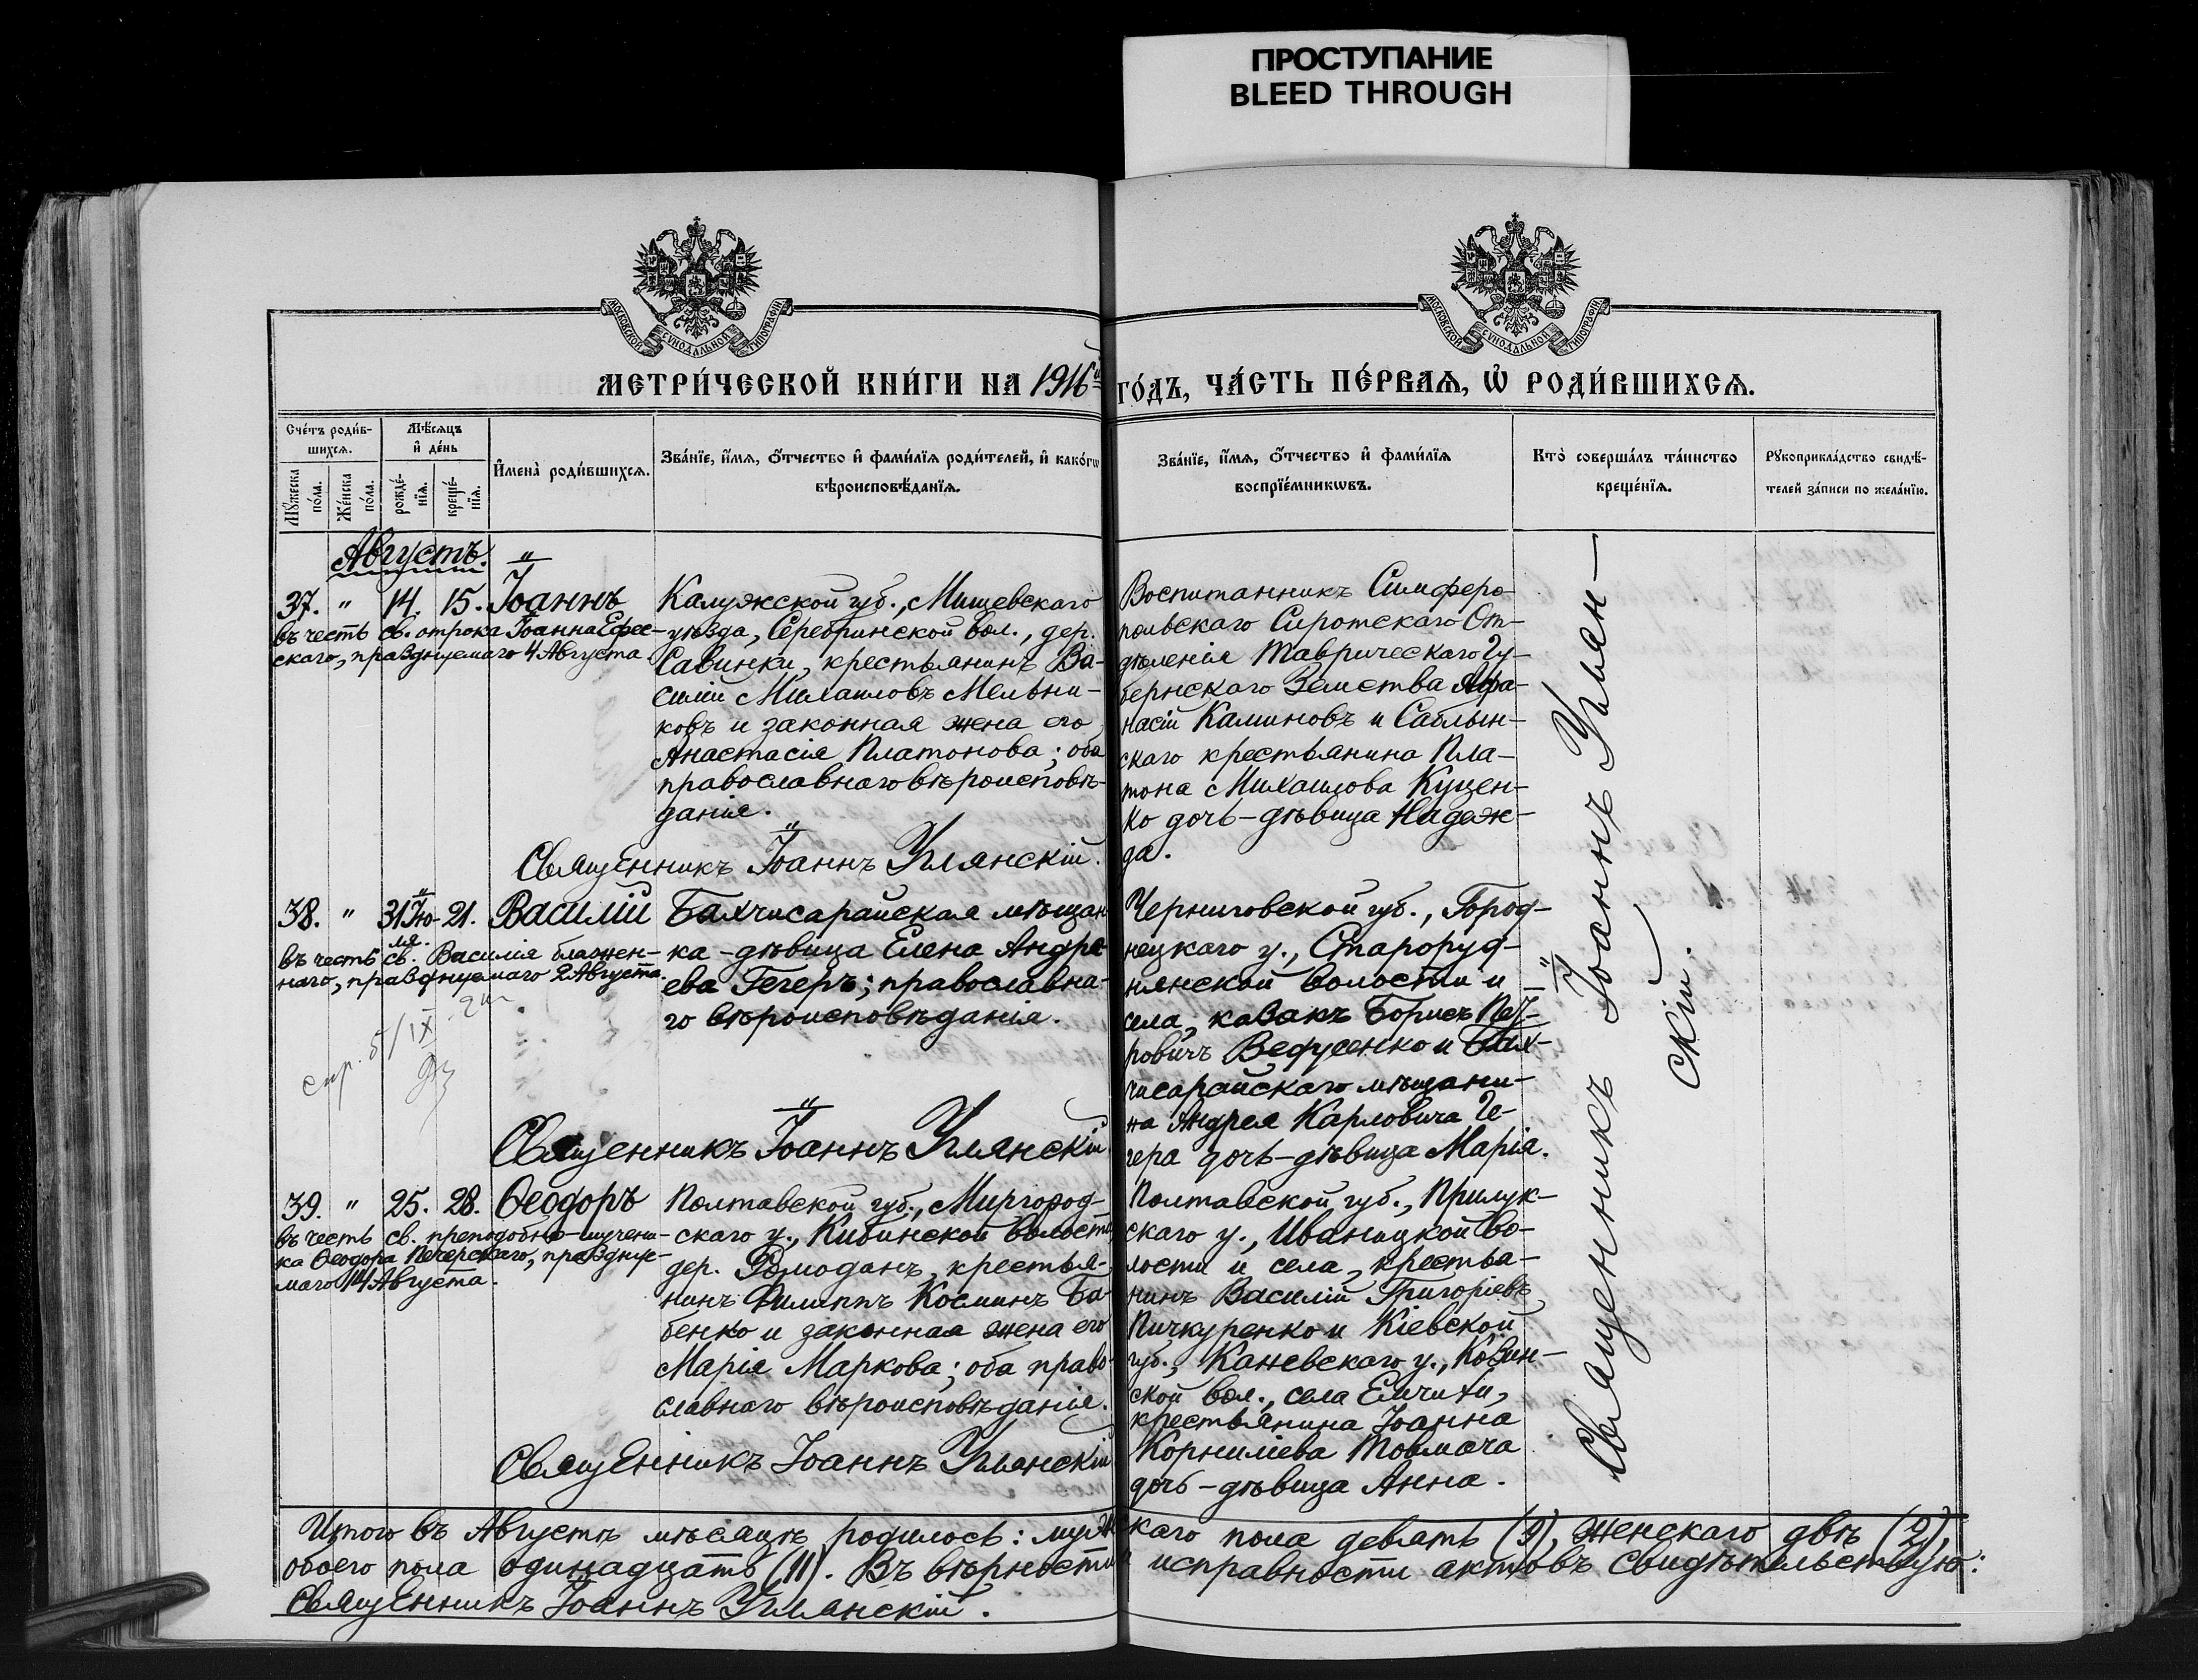 ПРОСТУПАНИЕ
BLEED THROUGH
МОСКОВСКОЙ СУНОДАЛЬНОЙ ТИПОГРАФІИ
МОСКОВСКОЙ СУНОДАЛЬНОЙ ТИПОГРАФІИ
МЕТРИ́ЧЕСКОЙ КНИ́ГИ НА 1916й ГО́ДЪ, ЧА́СТЬ ПЕ́РВАЯ, Ѡ҆ РОДИ́ВШИХСЯ.
Сче́тъ роди́в-
шихся.
Мѣ́сяцъ
и҆ де́нь
Му́жеска по́ла.
Же́нска по́ла.
рожде́-
нїя.
креще́-
нїя.
И҆мена̀ роди́вшихся.
Зва́нїе, и҆́мя, ѻ҆́тчество и҆ фами́лїя роди́телей, и҆ како́гѡ
вѣроисповѣ́данїя.
Зва́нїе, и҆́мя, ѻ҆́тчество и҆ фами́лїя
воспрїе́мникѡвъ.
Кто̀ соверша́лъ та́инство
креще́нїя.
Рꙋкоприкла́дство свидѣ́-
телей за́писи по жела́нїю.
Августъ.
37. " 14. 15. Іоаннъ
въ честь св. отрока Іоанна Ефес-
скаго, празднуемаго 4 Августа
Калужской губ., Мищевскаго
уѣзда, Серебринской вол., дер.
Савинки, крестьянинъ Ва-
силій Михаиловъ Мельни-
ковъ и законная жена его
Анастасія Платонова; оба
православнаго вѣроисповѣ-
данія.
Священникъ Іоаннъ Углянскій.
Воспитанникъ Симферо-
польскаго Сиротскаго От-
дѣленія Таврическаго Гу-
бернскаго Земства Афа-
насій Калиновъ и Саблын-
скаго крестьянина Пла-
тона Михаилова Куцен-
ко дочь-дѣвица Надеж-
да.
38. " 31 Ію- 21. Василій
ля.
въ честь св. Василія блажен-
наго, празднуемаго 2 Августа.
Бахчисарайская мѣщан-
ка-дѣвица Елена Андре-
ева Гегеръ; православна-
го вѣроисповѣданія.
Священникъ Іоаннъ Углянскій
Черниговской губ., Город-
нецкаго у., Старóруд-
нянской волости и
села, казакъ Борисъ Пет-
ровичъ Ведусенко и Бах-
чисарайскаго мѣщани-
на Андрея Карловича Ге-
гера дочь-дѣвица Марія.
39. " 25. 28. Ѳеодоръ
въ честь св. преподобно-мучени-
ка Ѳеодора Печерскаго, праздну-
маго 14 Августа.
Полтавской губ., Миргород-
скаго у., Кибинской волости
дер. Ромоданъ, крестья-
нинъ Филиппъ Косминъ Ба-
бенко и законная жена его
Марія Маркова; оба право-
славнаго вѣроисповѣданія.
Священникъ Іоаннъ Углянскій
Полтавской губ., Прилук-
скаго у., Иваницкой во-
лости и села, крестья-
нинъ Василій Григоріевъ
Пичкуренко и Кіевской
губ., Каневскаго у., Козин-
ской вол., села Емчихи,
крестьянина Іоанна
Корниліева Товмача
дочь-дѣвица Анна.
Священникъ Іоаннъ Углян-
скій.
Итого въ Августѣ мѣсяцѣ родилось: мужскаго пола девять (9), женскаго двѣ (2),
обоего пола одинадцать (11). Въ вѣрности и исправности актовъ свидѣтельствую:
Священникъ Іоаннъ Углянскій.